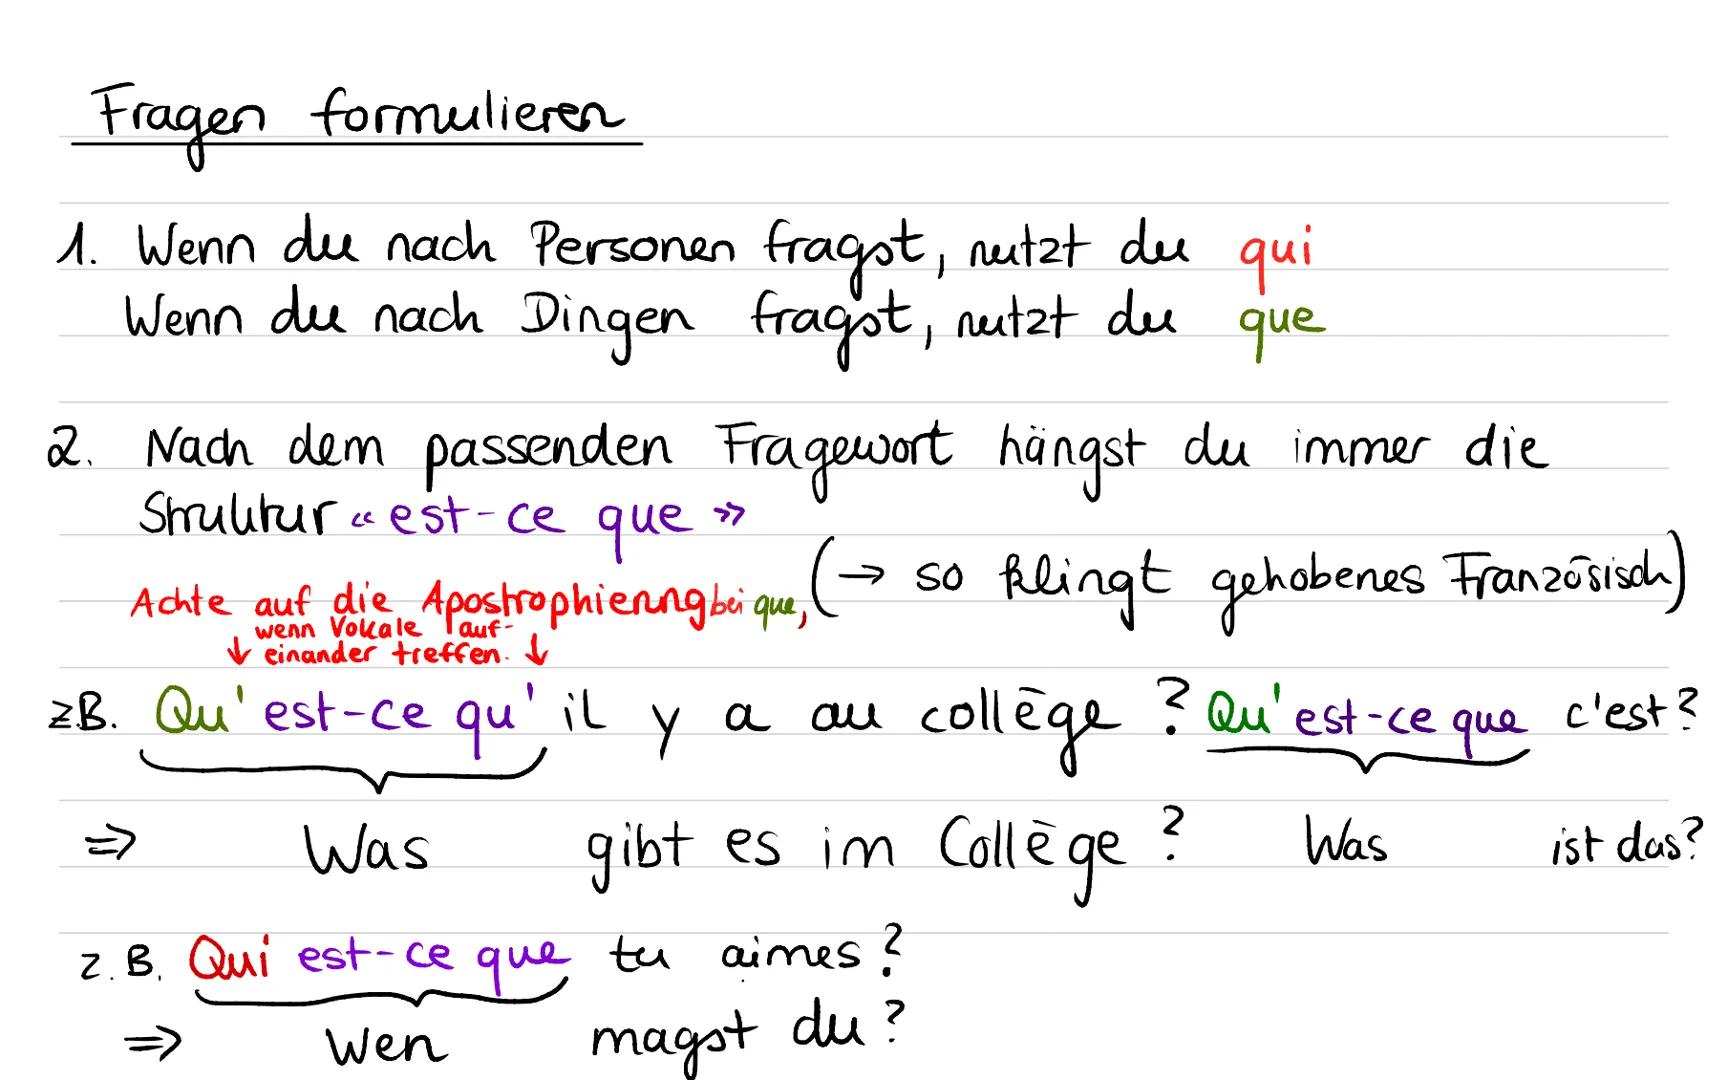 Fragen formulieren
1. Wenn du nach Personen fragst, nutzt du qui
Wenn du nach Dingen fragst, nutzt du que
2. Nach dem passenden Fragewort hängst du immer die
Struktur « est-ce que »
(→ so klingt gehobenes Französisch)
Achte auf die Apostrophierung bei que,
wenn Vokale auf-
↓ einander treffen. ↓
z.B. Qu'est-ce qu'il y a au collège ? Qu'est-ce que c'est ?
⇒ Was gibt es im Collège ? Was ist das?
z.B. Qui est-ce que tu aimes ?
⇒ Wen magst du ?